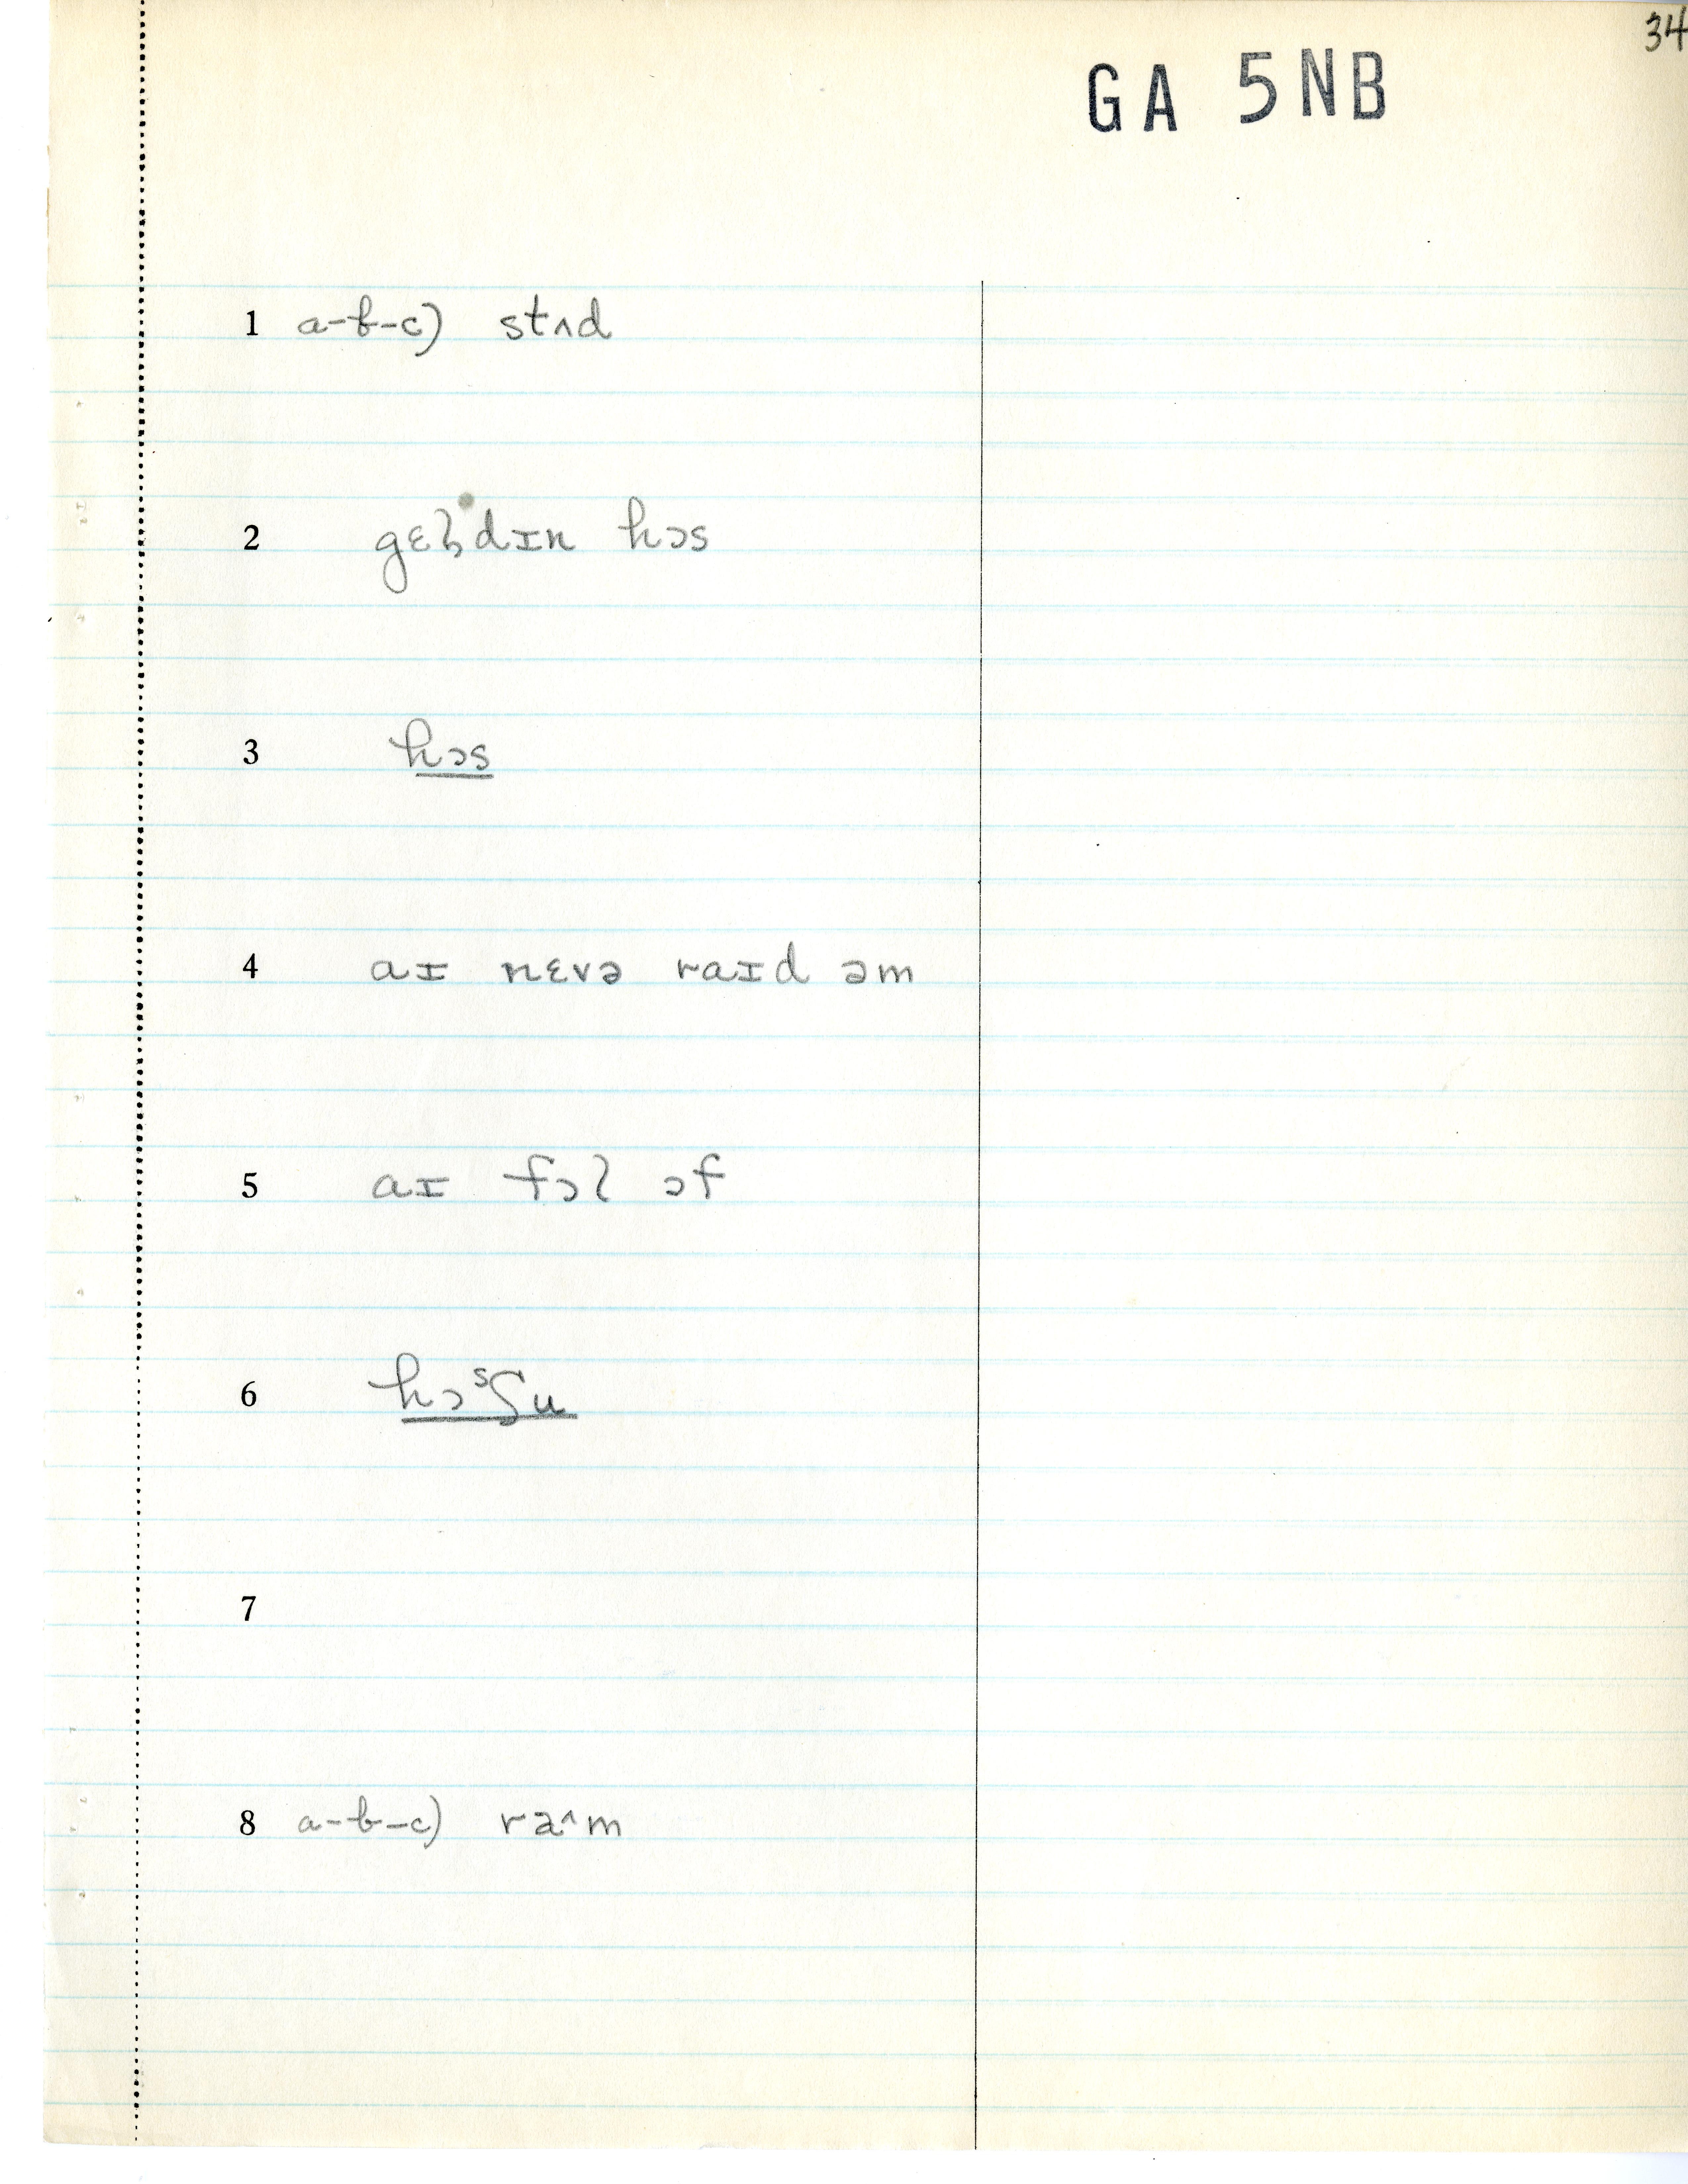 34
GA 5NB
1 a-b-c) stʌd
2 gɛlˈdɪn hɔs
3 hɔs
4 aɪ nɛvə raɪd əm
5 aɪ fɔl ɔf
6 hɔˢʃu
7
8 a-b-c) ra^m